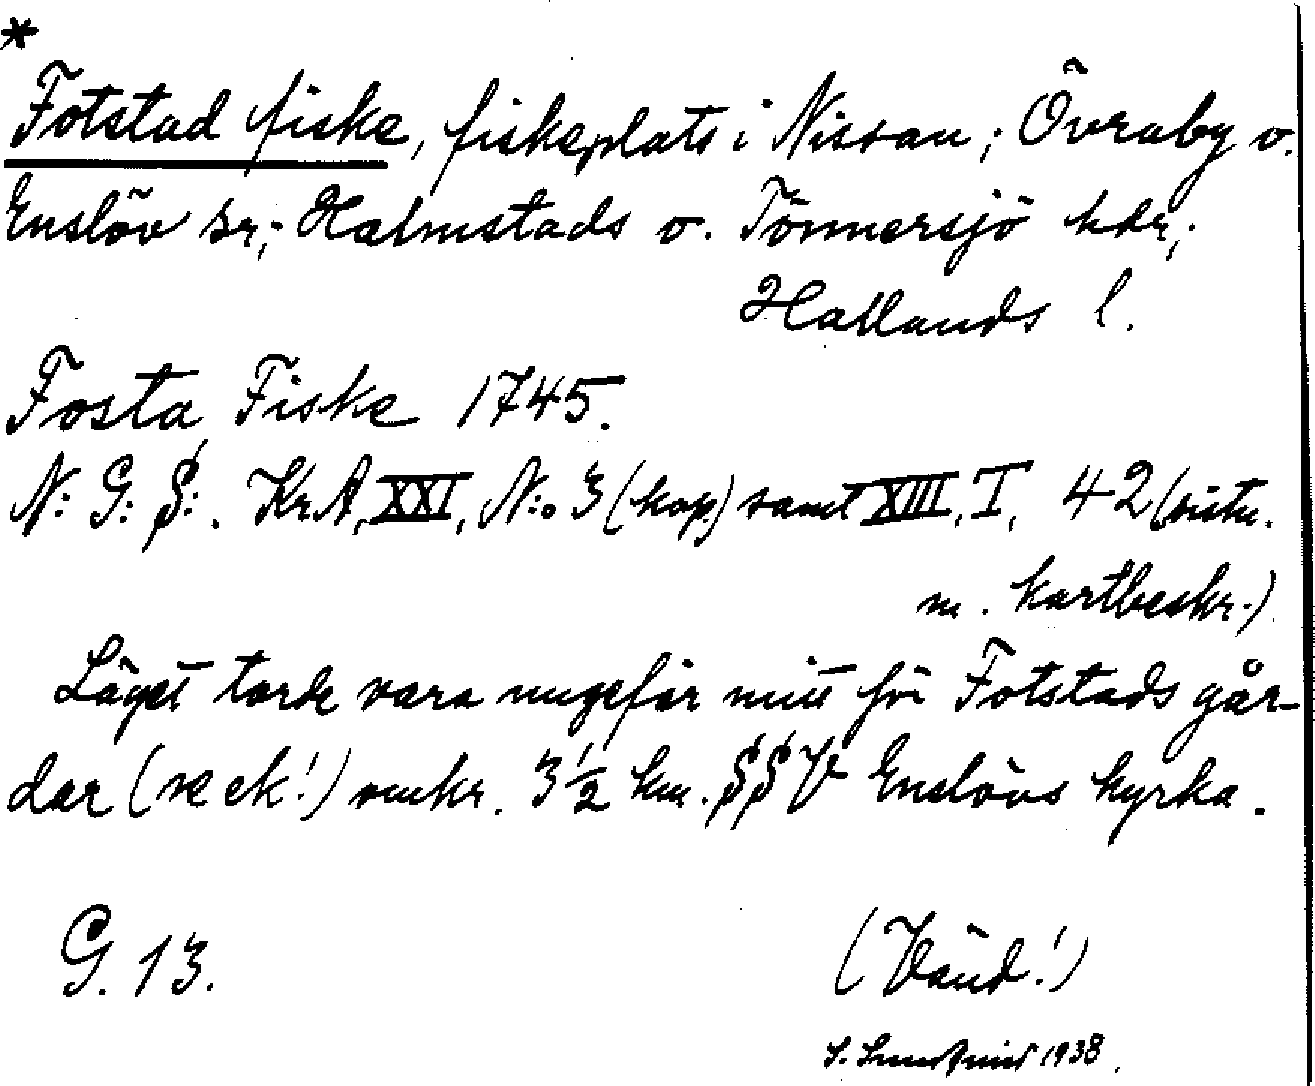 *
Fotstad fiske, fiskeplats i Nissan; Övraby o.
Enslöv sr; Halmstads o. Tönnersjö hdr;
Hallands l.
Fosta Fiske 1745.
N: G: S: . KrA, XXI, N:o 3 (kop.) samt XIII, I, 42 (situ.
m. kartbeskr.)
Läget torde vara ungefär mitt för Fotstads går-
dar (se ek!) omkr. 3 1/2 km. SSV Enslövs kyrka.
G. 13.
(Vänd!)
1938.